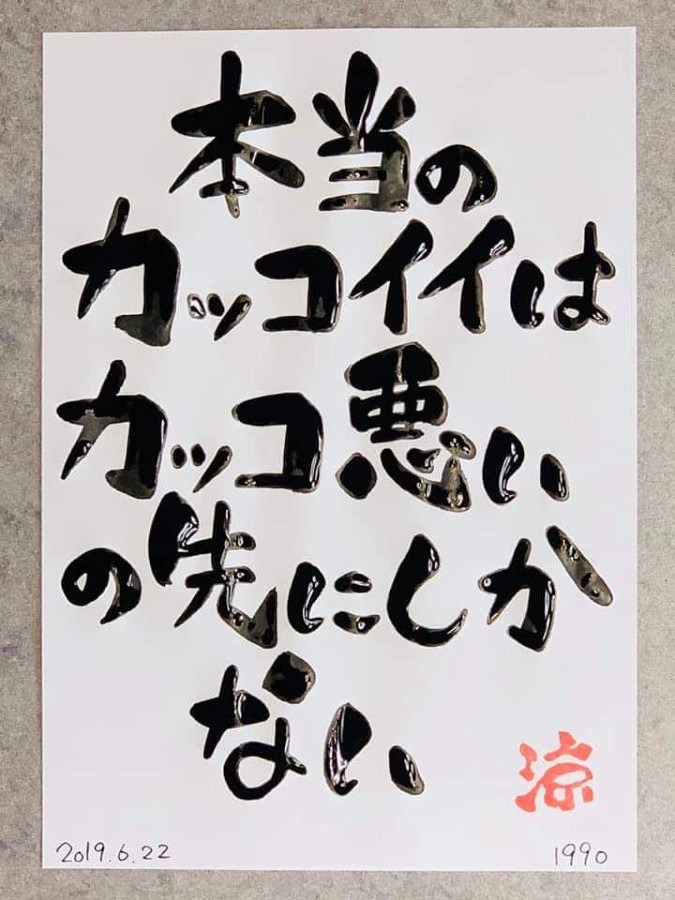 本当の
カッコイイは
カッコ悪い
の先にしか
ない
涼
2019.6.22
1990